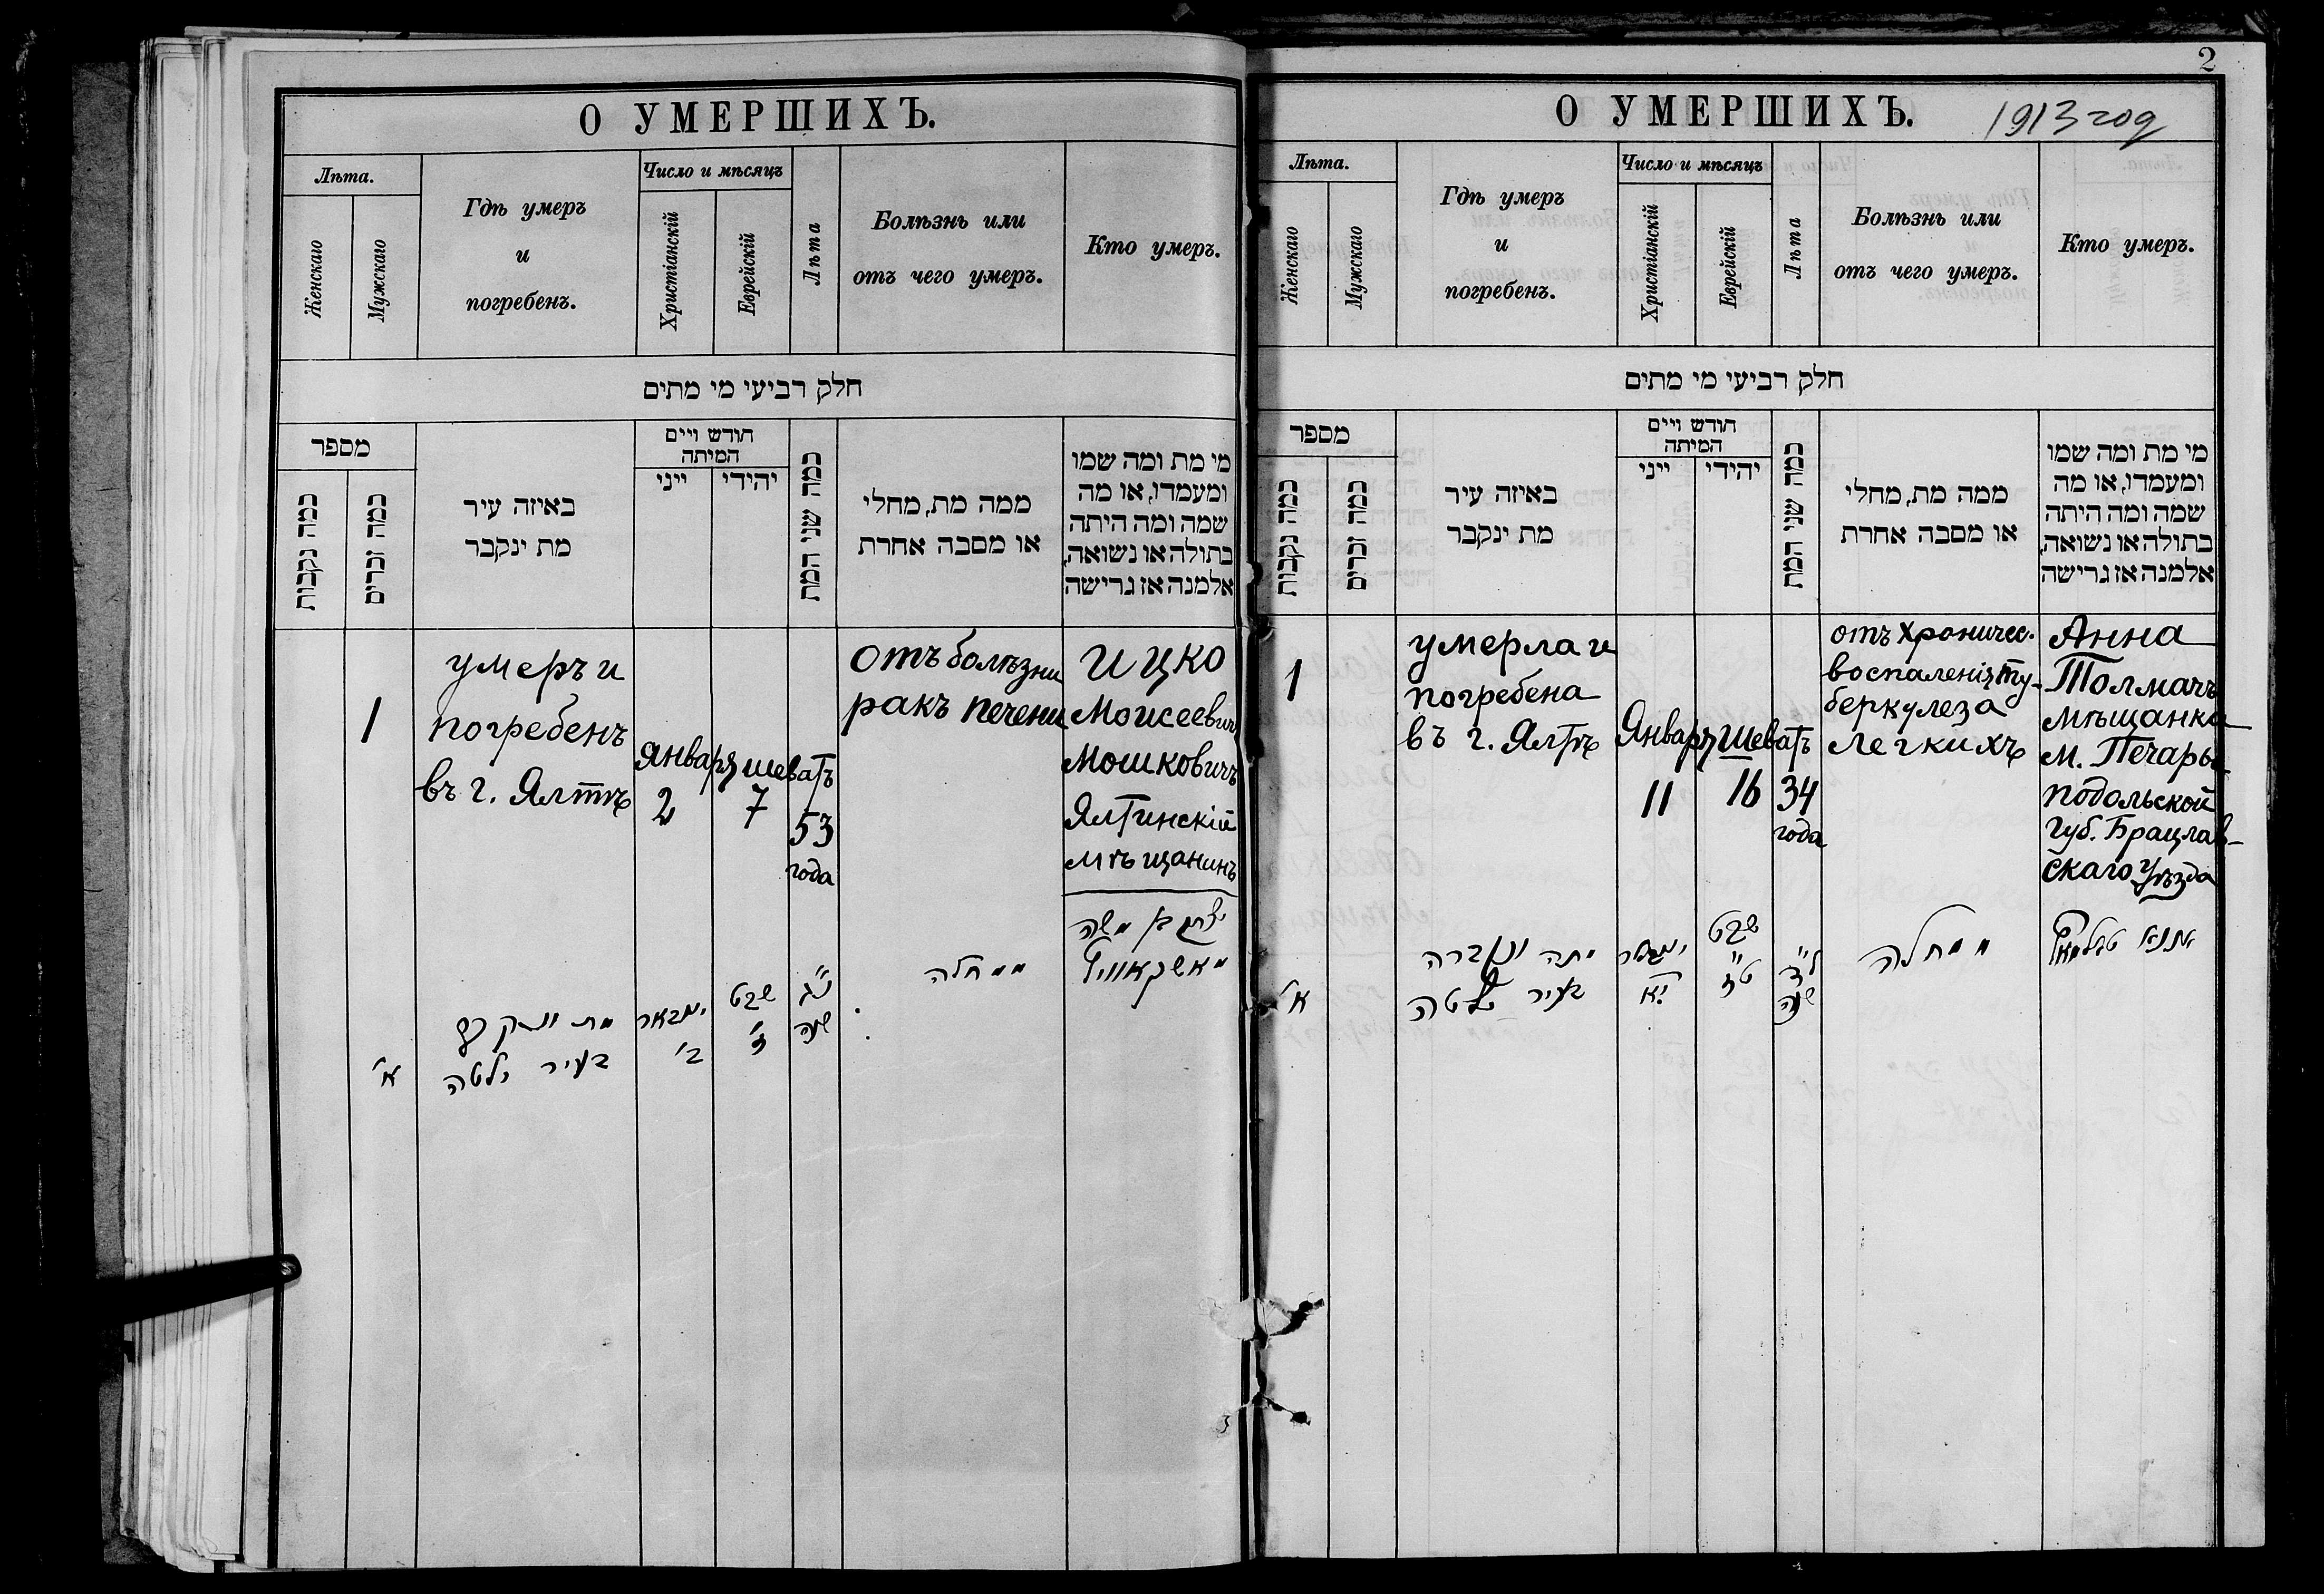 О УМЕРШИХЪ.
Лѣта.
Женскаго
Мужскаго
Гдѣ умеръ
и
погребенъ.
Число и мѣсяцъ
Христіанскій
Еврейскій
Лѣта
Болѣзнь или
отъ чего умеръ.
Кто умеръ.
חלק רביעי מי מתים
מספר
כמה נקבות
כמה זכרים
באיזה עיר
מת ינקבר
חודש ויים
המיתה
ייני
יהידי
כמה שני המת
ממה מת, מחלי
או מסבה אחרת
מי מת ומה שמו
ומעמדו, או מה
שמה ומה היתה
בתולה או נשואה,
אלמנה אז גרישה
1
умеръ и
погребенъ
въ г. Ялтѣ
Января
2
шеватъ
7
53
года
отъ болѣзни
ракъ печени
Ицко
Моисеевич
Мошковичъ
Ялтинскій
мѣщанинъ
א'
בעיר ילטה
ב'
שבט
ז'
נ"ג
שנה
ממחלה
יצחק בן משה
מאשקאוויץ
2
О УМЕРШИХЪ.
1913 год
Лѣта.
Женскаго
Мужскаго
Гдѣ умеръ
и
погребенъ.
Число и мѣсяцъ
Христіанскій
Еврейскій
Лѣта
Болѣзнь или
отъ чего умеръ.
Кто умеръ.
חלק רביעי מי מתים
מספר
כמה נקבות
כמה זכרים
באיזה עיר
מת ינקבר
חודש ויים
המיתה
ייני
יהידי
כמה שני המת
ממה מת, מחלי
או מסבה אחרת
מי מת ומה שמו
ומעמדו, או מה
שמה ומה היתה
בתולה או נשואה,
אלמנה אז גרישה
1
умерла и
погребена
въ г. Ялтѣ
Января
11
шеватъ
16
34
года
отъ хроничес.
воспаленія ту-
беркулеза
легкихъ
Анна
Толмачъ
мѣщанка
м. Печары
Подольской
Губ. Брацлав-
скаго уѣзда
א'
מתה ונקברה
בעיר ילטה
ינואר
י"א
שבט
ט"ז
ל"ד
שנה
ממחלה
אננא טולמאץ